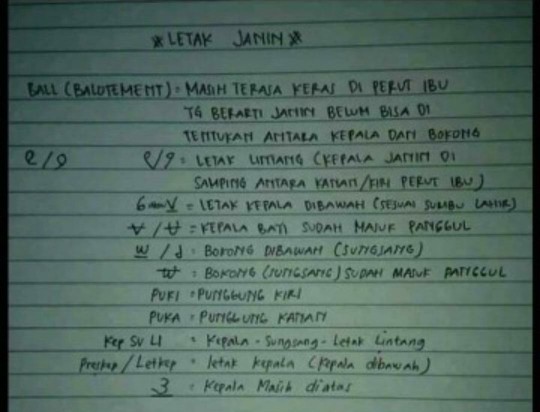 * LETAK JANIN *
BALL (BALOTEMENT) = MASIH TERASA KERAS DI PERUT IBU
YG BERARTI JANIN BELUM BISA DI
TENTUKAN ANTARA KEPALA DAN BOKONG
= LETAK LINTANG (KEPALA JANIN DI
SAMPING ANTARA KANAN/KIRI PERUT IBU)
= LETAK KEPALA DIBAWAH (SESUAI SUMBU LAHIR)
= KEPALA BAYI SUDAH MASUK PANGGUL
= BOKONG DIBAWAH (SUNGSANG)
= BOKONG (SUNGSANG) SUDAH MASUK PANGGUL
PUKI = PUNGGUNG KIRI
PUKA = PUNGGUNG KANAN
Kep SU LI = Kepala - Sungsang - Letak Lintang
Preskep / Letkep = letak kepala (kepala dibawah)
3 = Kepala Masih diatas